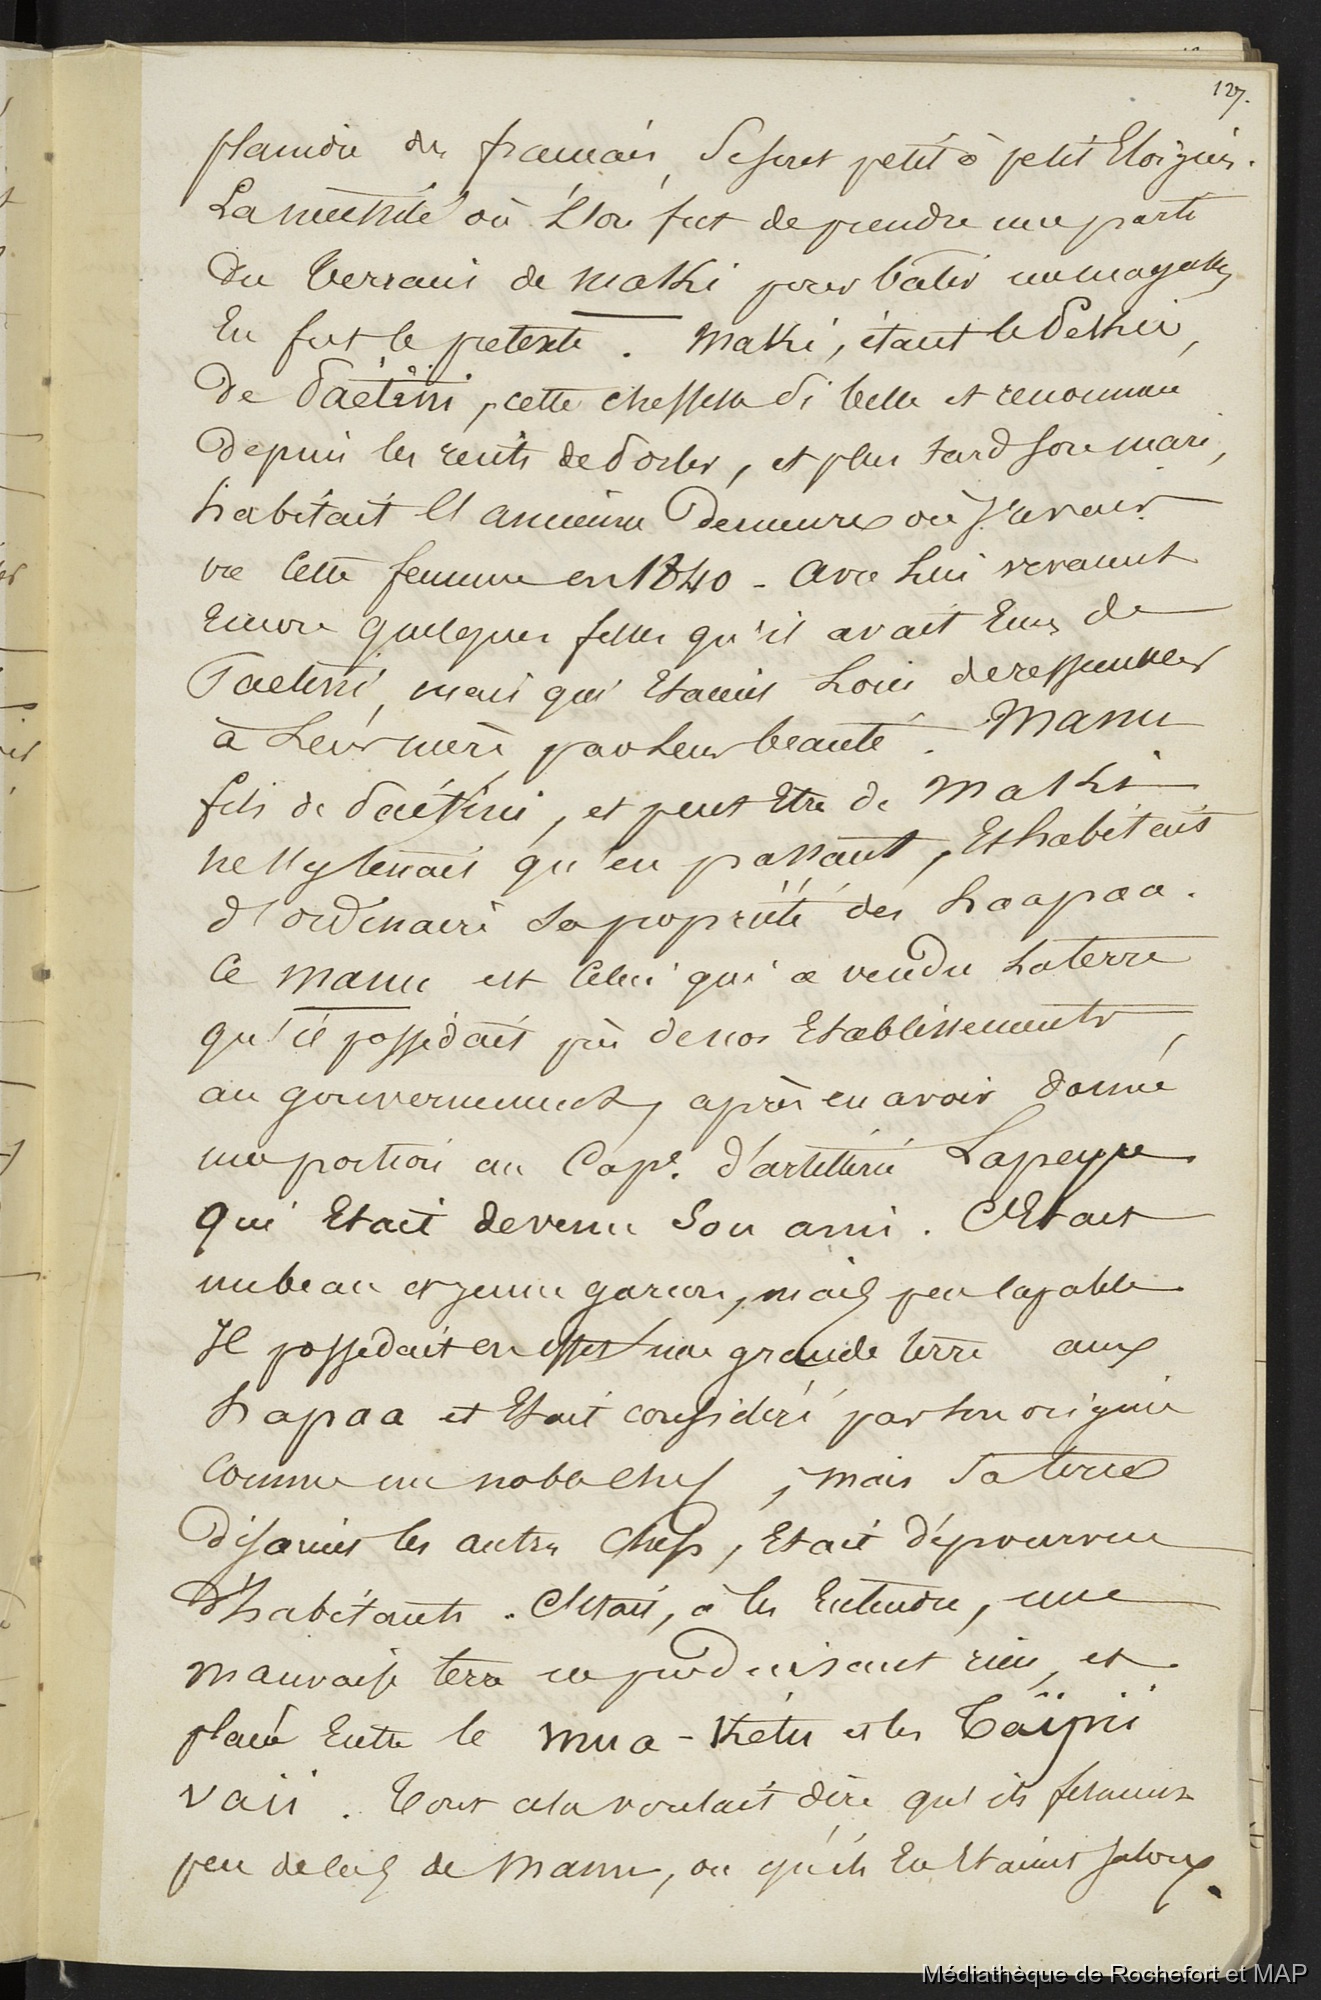 127.
plaindre des français, se sont petit à petit Eloignés.
La nécessité où l'on fut de prendre une partie
du terrain de Maki pour batir un magasin,
En fut le pretexte. Maki, étant le Pekiei,
de Taëtini, cette cheffesse si belle et renommée
Depuis les récits de Porter, et plus tard son mari,
habitait l'ancienne Demeure où j'avais
vu cette femme en 1840 - Avec Lui vivaient
Encore quelques filles qu'il avait Eues de
Taetini, mais qui Etaient Loin de ressembler
à Leur mère par Leur beauté. Manu
fils de Taétini, et peut Etre de Maki
ne s'y tenait qu'en passant, Et habitait
d'ordinaire sa propriété des haapaa.
Ce Manu est Celui qui a vendu La terre
qu'il possédait près de nos Etablissements,
au gouvernement, après en avoir donné
une portion au Cape. d'artillerie Lapeyre
qui Etait devenu Son ami. C'Etait
un beau et jeune garcon, mais peu capable
Il possedait en effet une grande terre aux
hapaa et Etait considéré par son origine
comme un noble chef, mais sa terre
disaient les autres Chefs, Etait dépourvue
d'habitants. C'Etait, à les Entendre, une
mauvaise terre ne produisant rien, et
placée Entre le Mua-Kétu et les Taïpii
vaii. Tout cela voulait dire qu'ils fesaient
peu de cas de Manu, ou qu'ils En Etaient jaloux.
Médiathèque de Rochefort et MAP